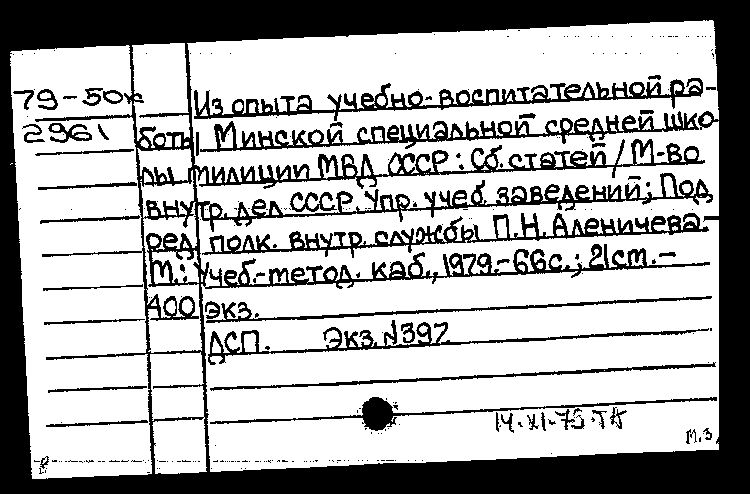 79-50к Из опыта учебно-воспитательной ра-
2961 боты Минской специальной средней шко-
лы милиции МВД СССР: Сб. статей / М-во
внутр. дел СССР. Упр. учеб. заведений; Под
ред. полк. внутр. службы П.Н. Аленичева.-
М.: Учеб.-метод. каб., 1979.-66с.; 21см.-
400 экз.
ДСП. Экз.№397
М.З.